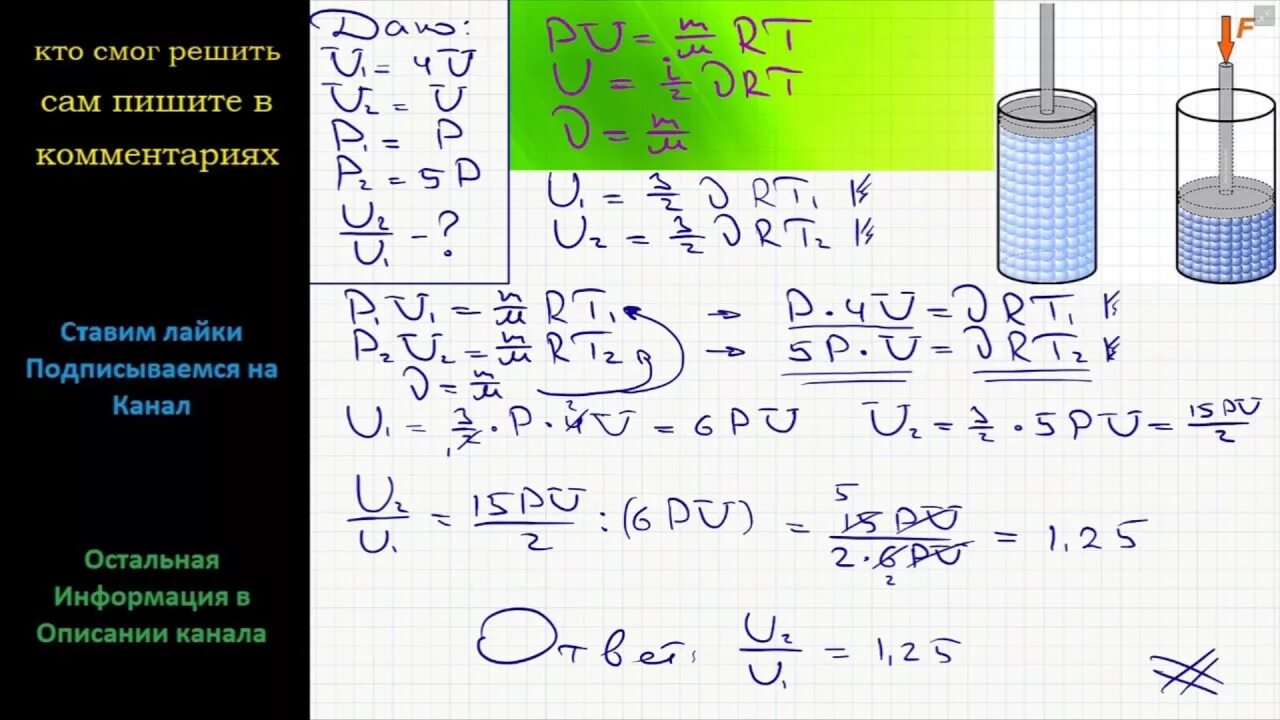 кто смог решить
сам пишите в
комментариях
Ставим лайки
Подписываемся на
Канал
Остальная
Информация в
Описании канала
Дано:
V̄₁ = 4V̄
V̄₂ = V̄
P₁ = P
P₂ = 5P
U₂/U₁ - ?
PV̄ = m/μ RT
U = i/2 νRT
ν = m/μ
F
U₁ = 3/2 ν RT₁
U₂ = 3/2 ν RT₂
P₁V̄₁ = m/μ RT₁ → P·4V̄ = νRT₁
P₂V̄₂ = m/μ RT₂ → 5P·V̄ = νRT₂
ν = m/μ
U₁ = 3/2·P·4V̄ = 6PV̄ U₂ = 3/2·5PV̄ = 15PV̄/2
U₂/U₁ = 15PV̄/2 : (6PV̄) = 15PV̄/2·6PV̄ = 1,25
Ответ: U₂/U₁ = 1,25